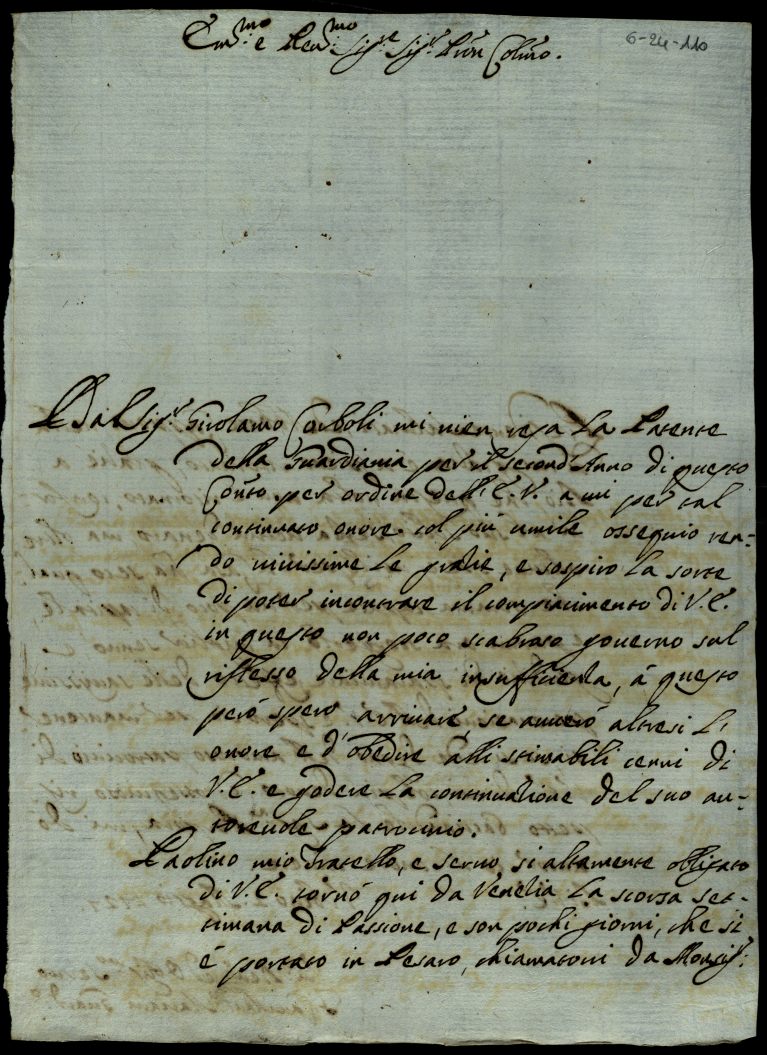 Em.mo e Rev.mo Sig.re Sig.r Pron Col.mo.
6-24-110
Dal Sig.r Girolamo Carboli mi vien resa La Patente
della Guardiania per il second'Anno di questo
Conv.to per ordine dell'E.V. a mi per tal
continuato onore col più umile ossequio ren-
do vivissime Le gratie, e sospiro La sorte
di poter incontrare il compiacimento di V.E.
in questo non poco scabroso governo sul
riflesso della mia insufficienza, à questo
però spero arrivare, se auuerò altresi L'
onore e d'obedire alli stimabili cenni di
V.E. e godere La continuatione del suo au-
toreuole patrocinio.
Paolino mio Fratello, e seruo, si altamente obligato
di V.E. tornò qui da Venetia La scorsa set-
timana di Passione, e son pochi giorni, che si
è portato in Pesaro, chiamatovi da Monsig.r